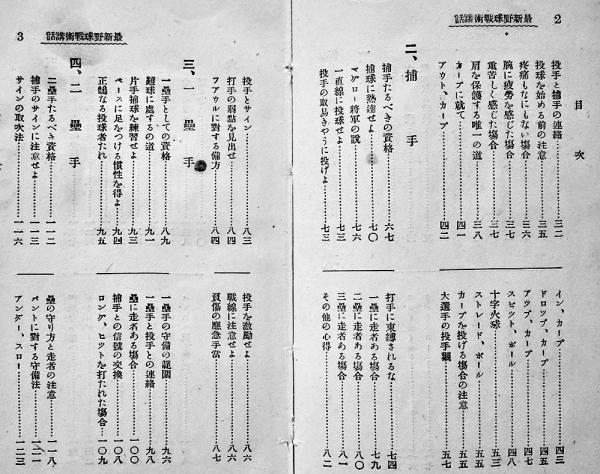 最新野球戰術講話
2
目次
投手と捕手の連絡……三二
投球を始める前の注意……三五
疼痛もなにもない場合……三六
腕に疲勞を感じた場合……三七
重苦しく感じた場合……三七
肩を保護する唯一の道……三八
カーブに就て……四一
アウト、カーブ……四二
二、捕手
捕手たるべきの資格……六七
捕球に熟達せよ……七〇
マグロー將軍の說……七一
一直線に投球せよ……七三
投手の取易きやうに投げよ……七三
イン、カーブ……四三
ドロップ、カーブ……四五
アップ、カーブ……四七
スピット、ボール……四八
十字火球……五三
ストレード、ボール……五五
カーブを投げる場合の注意……五五
大選手の投手觀……五七
打手に束縛されるな……七四
一壘に走者ある場合……七九
二壘に走者ある場合……八〇
三壘に走者ある場合……八一
その他の心得……八二
最新野球戰術講話
3
投手とサイン……八三
打手の弱點を見出せ……八四
フアウルに對する備方……八四
三、一壘手
一壘手としての資格……八九
難球に處するの道……九一
片手捕球を練習せよ……九三
ベースに足をつける慣性を得よ……九四
正鵠なる投球者たれ……九五
四、二壘手
二壘手たるべき資格……一一二
捕手のサインに注意せよ……一一三
サインの取吹法……一一六
投手を激勵せよ……八六
戰線に注意せよ……八六
負傷の應急手當……八七
一壘手の守備の範圍……九六
一壘手と投手との連絡……九八
壘に走者ある場合……一〇〇
捕手との信號の交換……一〇八
ロング、ヒットを打たれた場合……一〇九
壘の守り方と走者の注意……一一八
バントに對する守備法……一二一
アンダー、スロー……一二三